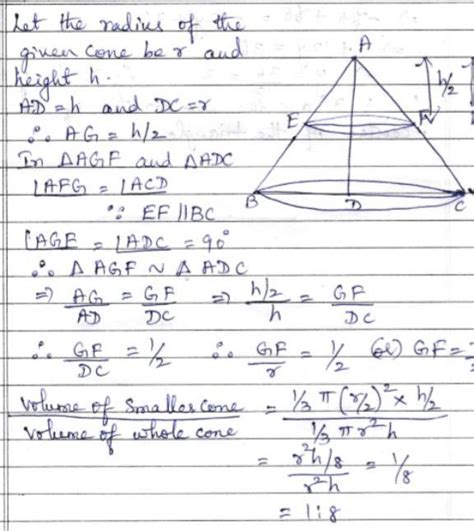 Let the radius of the
given cone be r and
height h.
AD = h and DC = r
∴ AG = h/2
In ΔAGF and ΔADC
∠AFG = ∠ACD
∵ EF || BC
∠AGE = ∠ADC = 90°
∴ Δ AGF ~ Δ ADC
⇒ AG/AD = GF/DC ⇒ (h/2)/h = GF/DC
∴ GF/DC = 1/2 ∴ GF/r = 1/2 (or) GF =
Volume of smaller cone / Volume of whole cone = (1/3 π (r/2)² × h/2) / (1/3 π r² h)
= (r²h/8) / (r²h) = 1/8
= 1:8
A
h/2
E
F
B
D
C